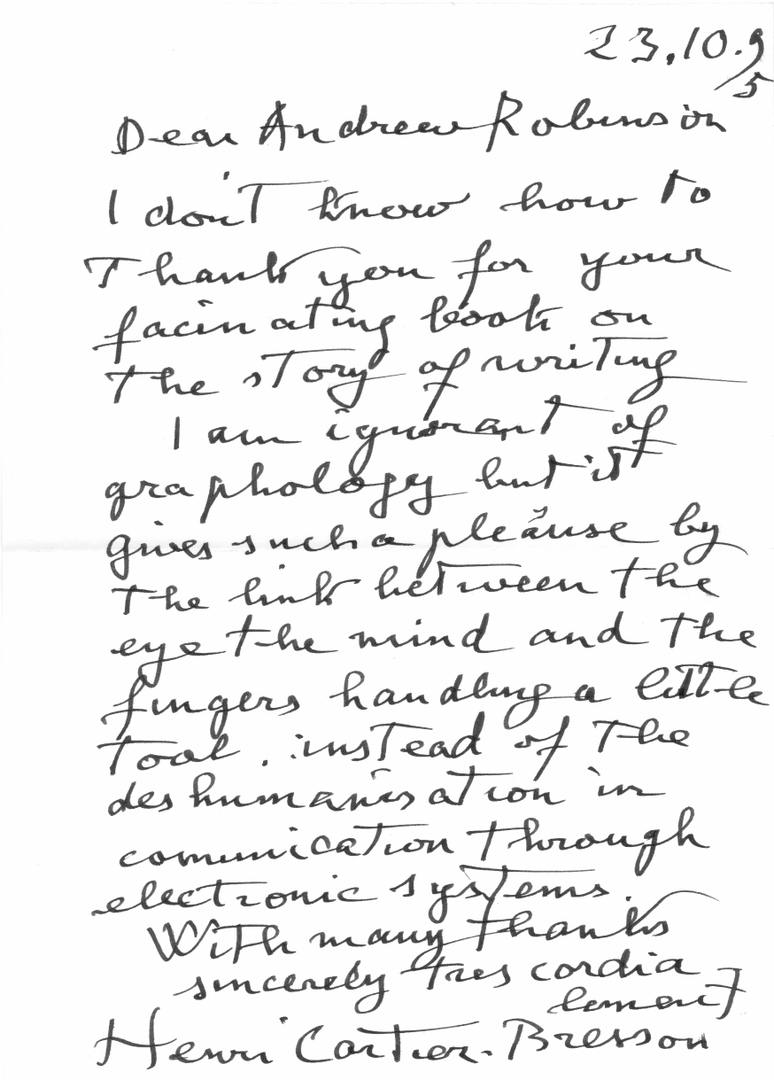 23.10.9
/5
Dear Andrew Robinson
I don't know how to
Thank you for your
facinating book on
the story of writing
I am ignorant of
graphology but it
gives such a pleasure by
the link between the
eye the mind and the
fingers handling a little
tool. instead of the
deshumanisation in
comunication through
electronic systems.
With many thanks
sincerely tres cordia
lement
Henri Cartier-Bresson